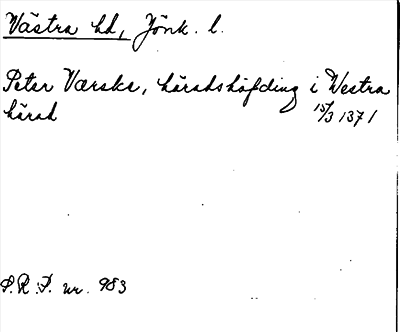 Västra hd, Jönk. l.
Peter Varske, häradshöfding i Westra
härad 15/3 1371
S.R.P. nr. 983